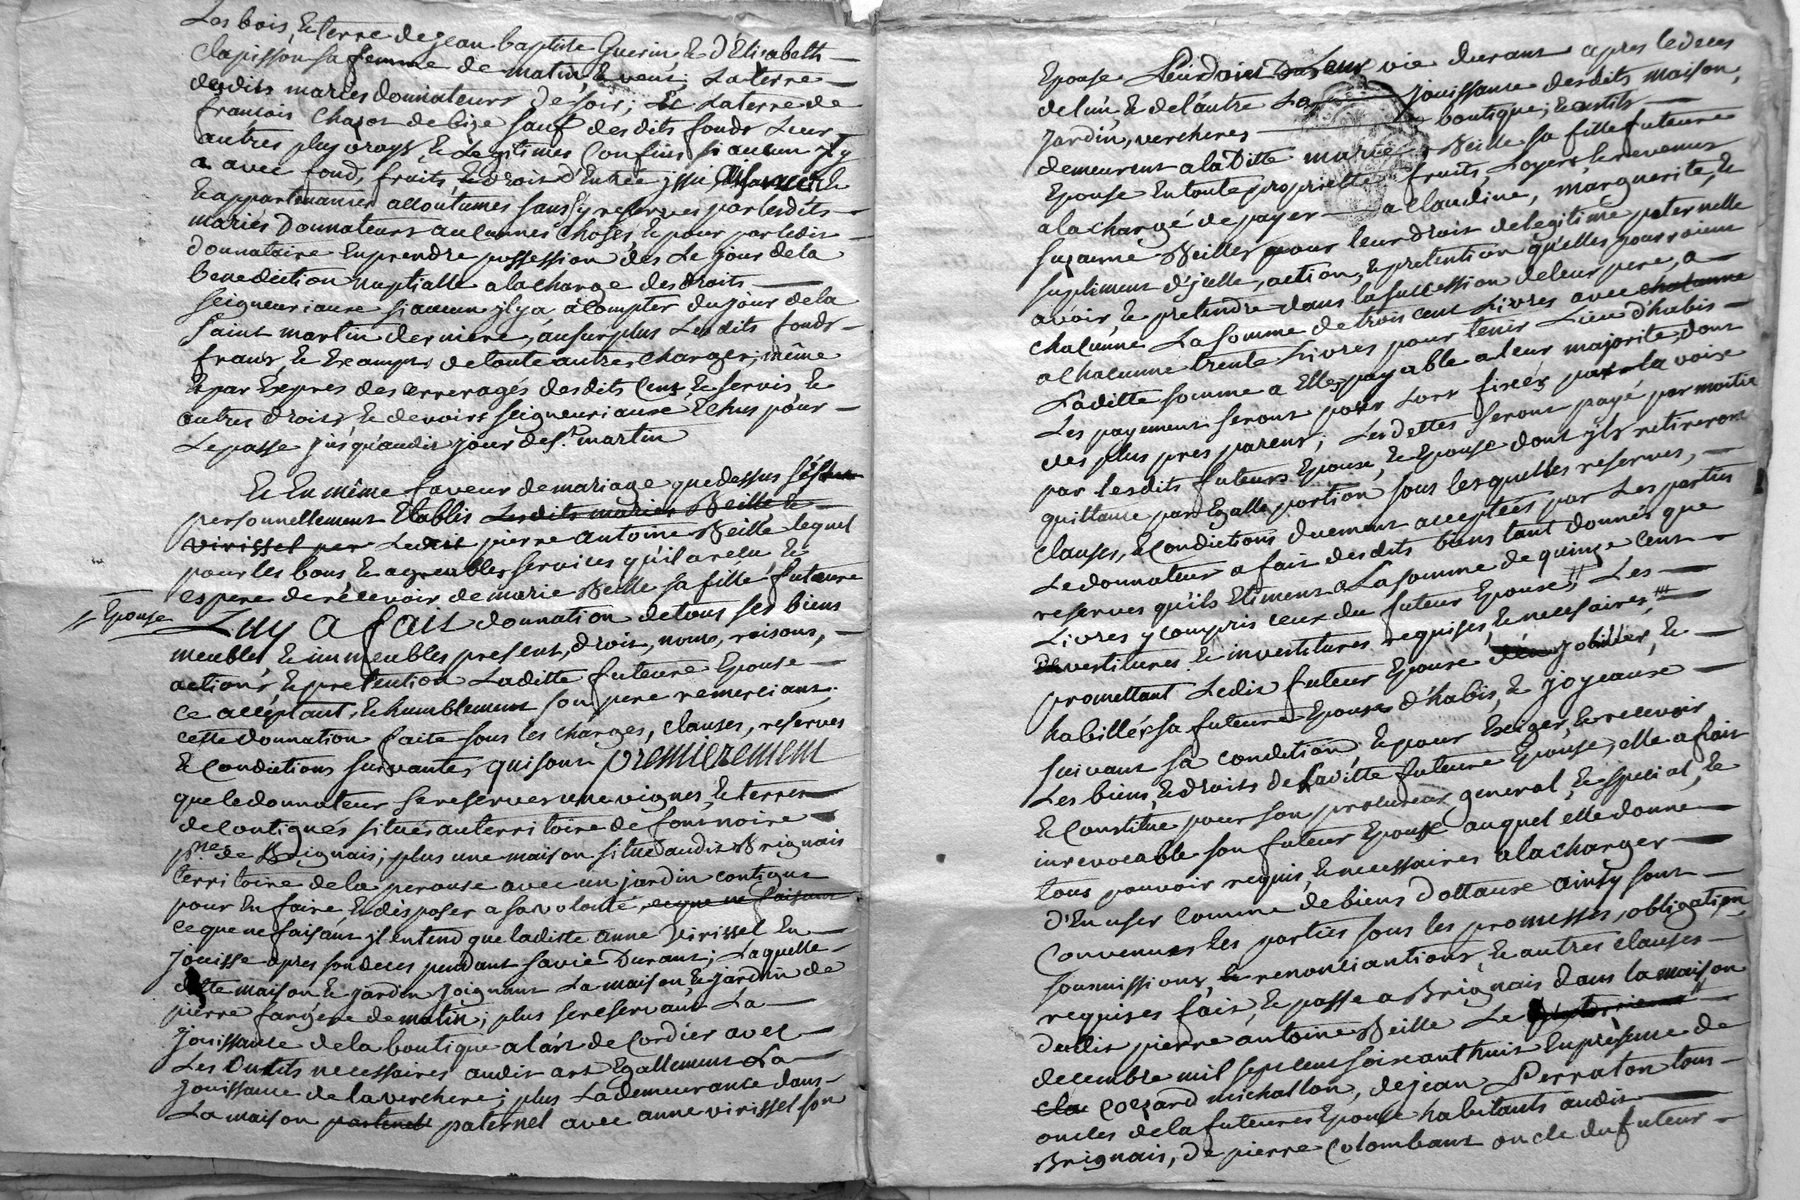 Les bois, & terre de jean baptiste Guerin, & d'Elisabeth
Clapisson sa femme de matin, & vent; La terre
desdits mariés donnateurs de soir; Et La terre de
francois Chazot de bize sauf desdits fonds Leur
autres plus vrays, & Legitimes Confins si aucun y
a avec fond, fruits, & droit d'Entrée, issu,
& appartenances accoutumés sans y reserver par lesdits
mariés Donnateurs aucunnes Choses & pour par ledit
donnataire En prendre possession dés Le jour de la
benediction nuptialle a la charge des droits
seigneuriaux si aucun jl y a à Compter du jour de la
saint martin derniere, au surplus Lesdits fonds
francs, & Exampts de toute autres charges, même
& par Exprés des arreragés desdits Cens, & servis &
autres droits & devoirs seigneuriaux Echus pour
Le passé jusqu'audit jour de St. martin
Et En même faveur de mariage que dessus s'est
personnellement Etablis Lesdits mariés Beille &
virissel par Ledit pierre Antoine Beille lequel
pour les bons, & agreables services qu'il a reçu, &
espere de recevoir de marie Beille sa fille future
// Epouse
Luy a fait donnation de tous ses biens
meubles, & immeubles present, droit, noms, raisons,
actions, & pretention Laditte future Epouse
ce acceptant, & humblement son pere remerciant.
cette donnation faite sous les charges, clauses, reserves
& Conditions suivantes qui sont premierement
que le donnateur se reserve une vignes, & terres
de Contigués situés au territoire de fontnoire
psse de Brignais; plus une maison situé audit Brignais
territoire de la perouse avec un jardin contigue
pour En faire, & disposer a sa volonté, ce que ne faisant
ce que ne faisant jl entend que laditte anne Virissel En
jouisse apres son deces pendant sa vie Durant; Laquelle
ditte maison & jardin joignant La maison & jardin de
pierre fargere de matin; plus se reservant La
jouissance de la boutique a l'art de Cordier avec
Les Outils necessaires audit art Egallement La
jouissance de la verchere; plus La demeurance dans
La maison paternel avec anne virissel son
Epouse Leur vie durant apres le deces
de l'un, & de l'autre La jouissance desdits maison,
jardin, vercheres boutique; & outils
demeurent a la Ditte marie Beille sa fille future
Epouse En toute propriette fruits Loyers & revenus
a la chargé de payer a Claudine, marguerite, &
Suzanne Beille pour leur droit de legitime paternelle
suplement d'jcelle, action, & pretention qu'elles pourroient
avoir & pretendre dans la succession de leur pere, a
chacunne La somme de trois cent Livres avec chacunne
a chacunne trente Livres pour tenir Lieu d'habis
Laditte somme a Elles payable a leur majorité, dont
Les payement seront pour Lors fixés par la voix
des plus pres parens; Les dettes seront payé par moitié
par lesdits futurs Epoux, & Epouse dont jls retireront
quittance par Egalle portion sous lesquelles reserves,
clauses, & Conditions duement acceptées par Les parties
Le donnateur a fait desdits biens tant donnés que
reservés qu'ils Estiment a La somme de quinze Cent
Livres y compris ceux du futeur Epoux // Les
Devestitures & investitures requises, & necessaires,
promettant Ledit futeur Epoux & jobiller, &
habiller sa future Epouse d'habis, & joyeaux
suivant sa condition, & pour Exiger, & recevoir
Les biens, & droits de Laditte future Epouse, elle a fait
& Constitue pour son procureur general, & special, &
irrevocable son futeur Epoux auquel elle donne
tous pouvoir requis, & necessaires a la charger
d'En user comme de biens dottaux ainsy sont
Convenues les parties sous les promesses, obligation,
soumissions, & renonciantions, & autres clauses
requises fait, & passé a Brignais dans la maison
dudit pierre antoine Beille Le
decembre mil sept cent soixant huit En présence de
Cla Cottard michallon, de jean Perraton tous
oncles de la future Epouse habitants audit
Brignais, de pierre Colombant oncle du futeur